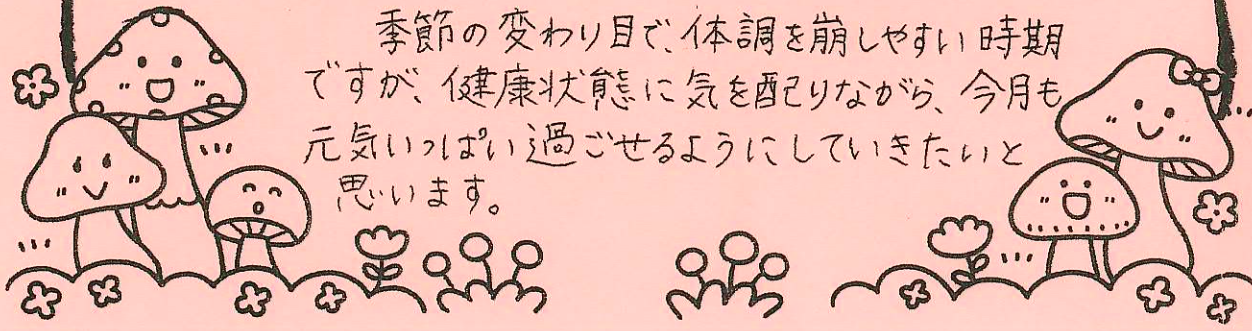 季節の変わり目で、体調を崩しやすい時期
ですが、健康状態に気を配りながら、今月も
元気いっぱい過ごせるようにしていきたいと
思います。